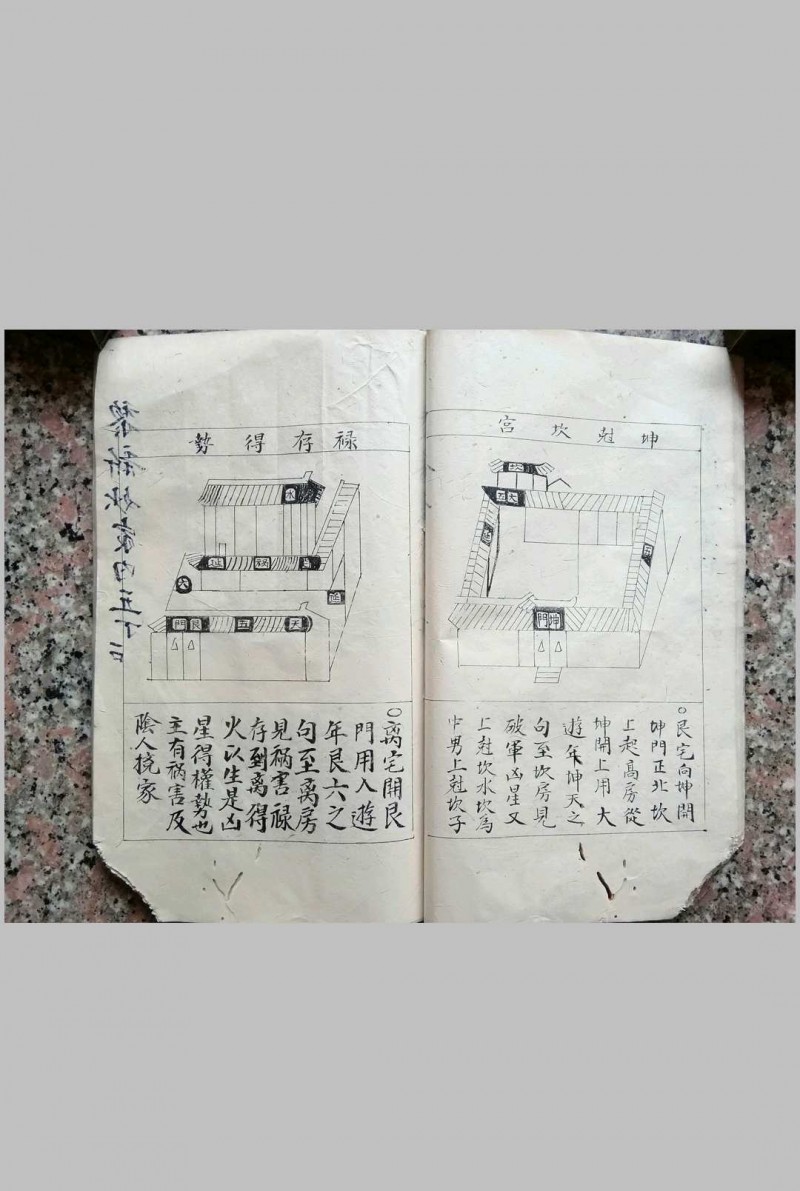 坤尅坎宮
坎
坤門
○艮宅向坤開
坤門正北坎
上起高房從
坤開上用大
遊年坤天之
句至坎房見
破軍凶星又
上尅坎水坎爲
中男上尅坎子
禄存得勢
水
六
天 五 艮門
○离宅開艮
門用入遊
年艮六之
句至离房
見祸害禄
存到离得
火以生是凶
星得權勢也
主有祸害及
陰人搅家